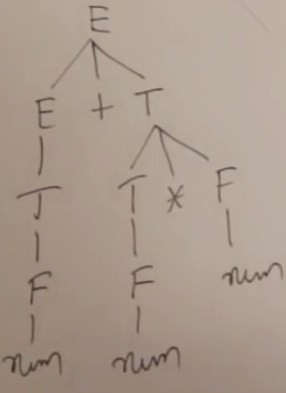 E
E + T
T T * F
F F num
num num